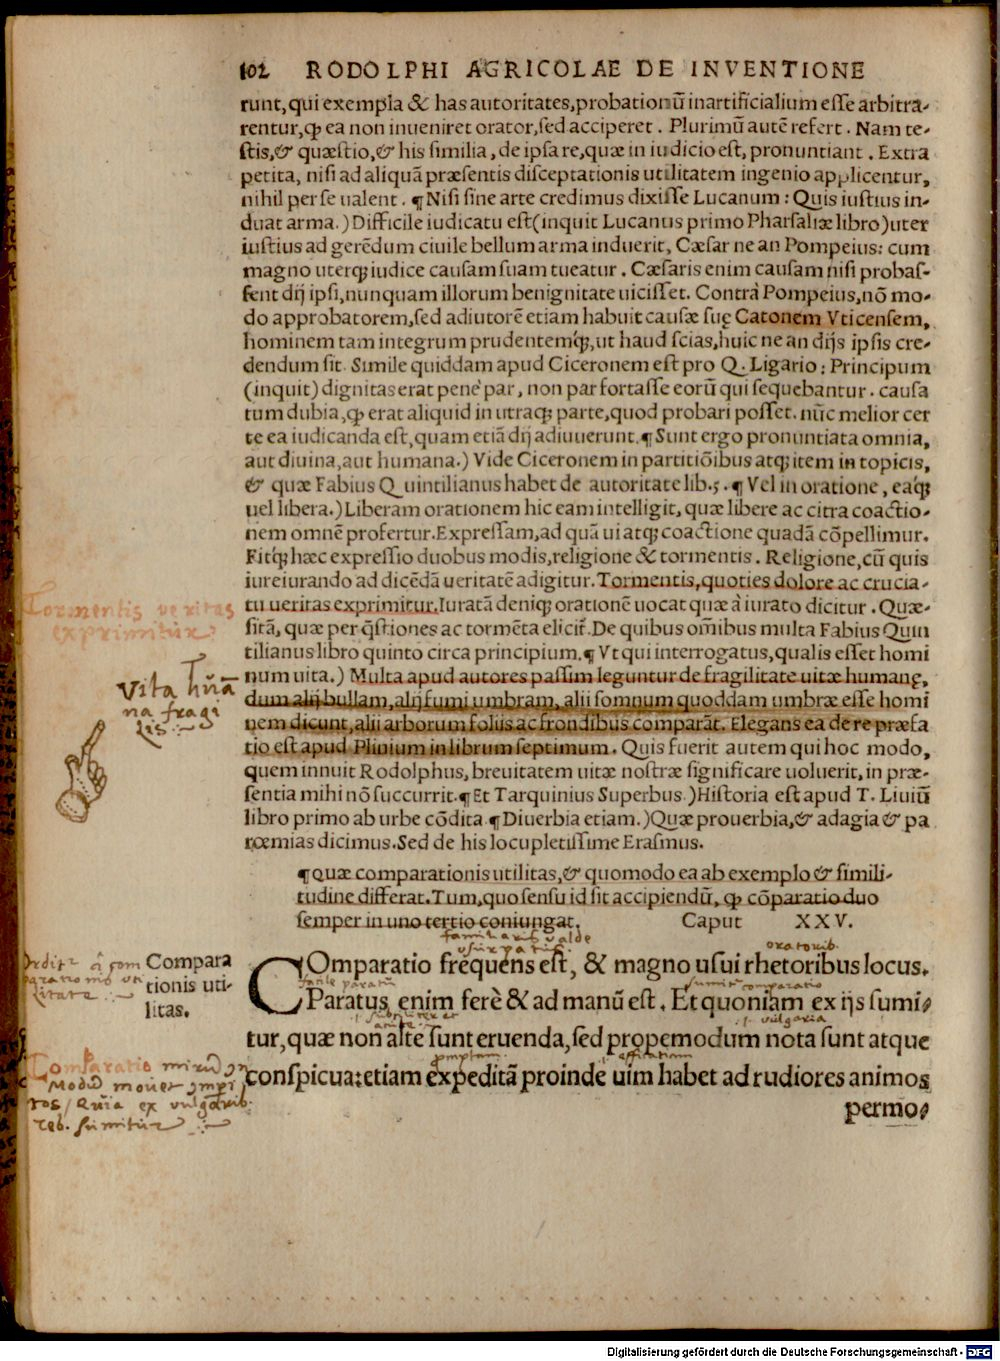 102 RODOLPHI AGRICOLAE DE INVENTIONE
runt, qui exempla & has autoritates, probationũ inartificialium esse arbitra-
rentur, ꝙ ea non inueniret orator, sed acciperet. Plurimũ autẽ refert. Nam te-
stis, & quæstio, & his similia, de ipsa re, quæ in iudicio est, pronuntiant. Extra
petita, nisi ad aliquã præsentis disceptationis utilitatem ingenio applicentur,
nihil per se ualent. ¶ Nisi sine arte credimus dixisse Lucanum: Quis iustius in-
duat arma.) Difficile iudicatu est (inquit Lucanus primo Pharsaliæ libro) uter
iustius ad gerẽdum ciuile bellum arma induerit, Cæsar ne an Pompeius: cum
magno uterq; iudice causam suam tueatur. Cæsaris enim causam nisi probas-
sent dij ipsi, nunquam illorum benignitate uicisset. Contrà Pompeius, nõ mo-
do approbatorem, sed adiutorẽ etiam habuit causæ suę Catonem Vticensem,
hominem tam integrum prudentemq́;, ut haud scias, huic ne an dijs ipsis cre-
dendum sit. Simile quiddam apud Ciceronem est pro Q. Ligario: Principum
(inquit) dignitas erat penè par, non par fortasse eorũ qui sequebantur. causa
tum dubia, ꝙ erat aliquid in utraq; parte, quod probari posset. nũc melior cer
te ea iudicanda est, quam etiã dij adiuuerunt. ¶ Sunt ergo pronuntiata omnia,
aut diuina, aut humana.) Vide Ciceronem in partitiõibus atq; item in topicis,
& quæ Fabius Quintilianus habet de autoritate lib. 5. ¶ Vel in oratione, eaq́;
uel libera.) Liberam orationem hic eam intelligit, quæ libere ac citra coactio-
nem omnẽ profertur. Expressam, ad quã ui atq; coactione quadã cõpellimur.
Fitq́; hæc expressio duobus modis, religione & tormentis. Religione, cũ quis
iureiurando ad dicẽdã ueritatẽ adigitur. Tormentis, quoties dolore ac crucia-
tu ueritas exprimitur. Iuratã deniq; orationẽ uocat quæ à iurato dicitur. Quæ-
Tormentis veritas
exprimitur
sitã, quæ per q̃stiones ac tormẽta elicit̃. De quibus om̃ibus multa Fabius Quin
tilianus libro quinto circa principium. ¶ Vt qui interrogatus, qualis esset homi
num uita.) Multa apud autores passim leguntur de fragilitate uitæ humanę,
dum alij bullam, alij fumi umbram, alij somnum quoddam umbræ esse homi
nem dicunt, alij arborum folijs ac frondibus comparãt. Elegans ea de re præfa
tio est apud Plinium in librum septimum. Quis fuerit autem qui hoc modo,
Vita hũã
na fragi
lis
quem innuit Rodolphus, breuitatem uitæ nostræ significare uoluerit, in præ-
sentia mihi nõ succurrit. ¶ Et Tarquinius Superbus.) Historia est apud T. Liuiũ
libro primo ab urbe cõdita. ¶ Diuerbia etiam.) Quæ prouerbia, & adagia & pa
rœmias dicimus. Sed de his locupletissime Erasmus.
¶ quæ comparationis utilitas, & quomodo ea ab exemplo & simili-
tudine differat. Tum, quo sensu id sit accipiendũ, ꝙ cõparatio duo
semper in uno tertio coniungat. Caput XXV.
familiaris valde
oratorib.
Compara
tionis uti-
litas.
Comparatio frequens est, & magno usui rhetoribus locus.
facile paratũ
sumit comparatio
Paratus enim ferè & ad manũ est. Et quoniam ex ijs sumi-
.i. vulgaria
tur, quæ non altè sunt eruenda, sed propemodum nota sunt atque
promptam
conspicua: etiam expeditã proinde uim habet ad rudiores animos
Comparatio mirũ in
Modũ mouet imperi
tos / Quia ex vulgarib.
reb. sumitur
permo-
Digitalisierung gefördert durch die Deutsche Forschungsgemeinschaft - DFG